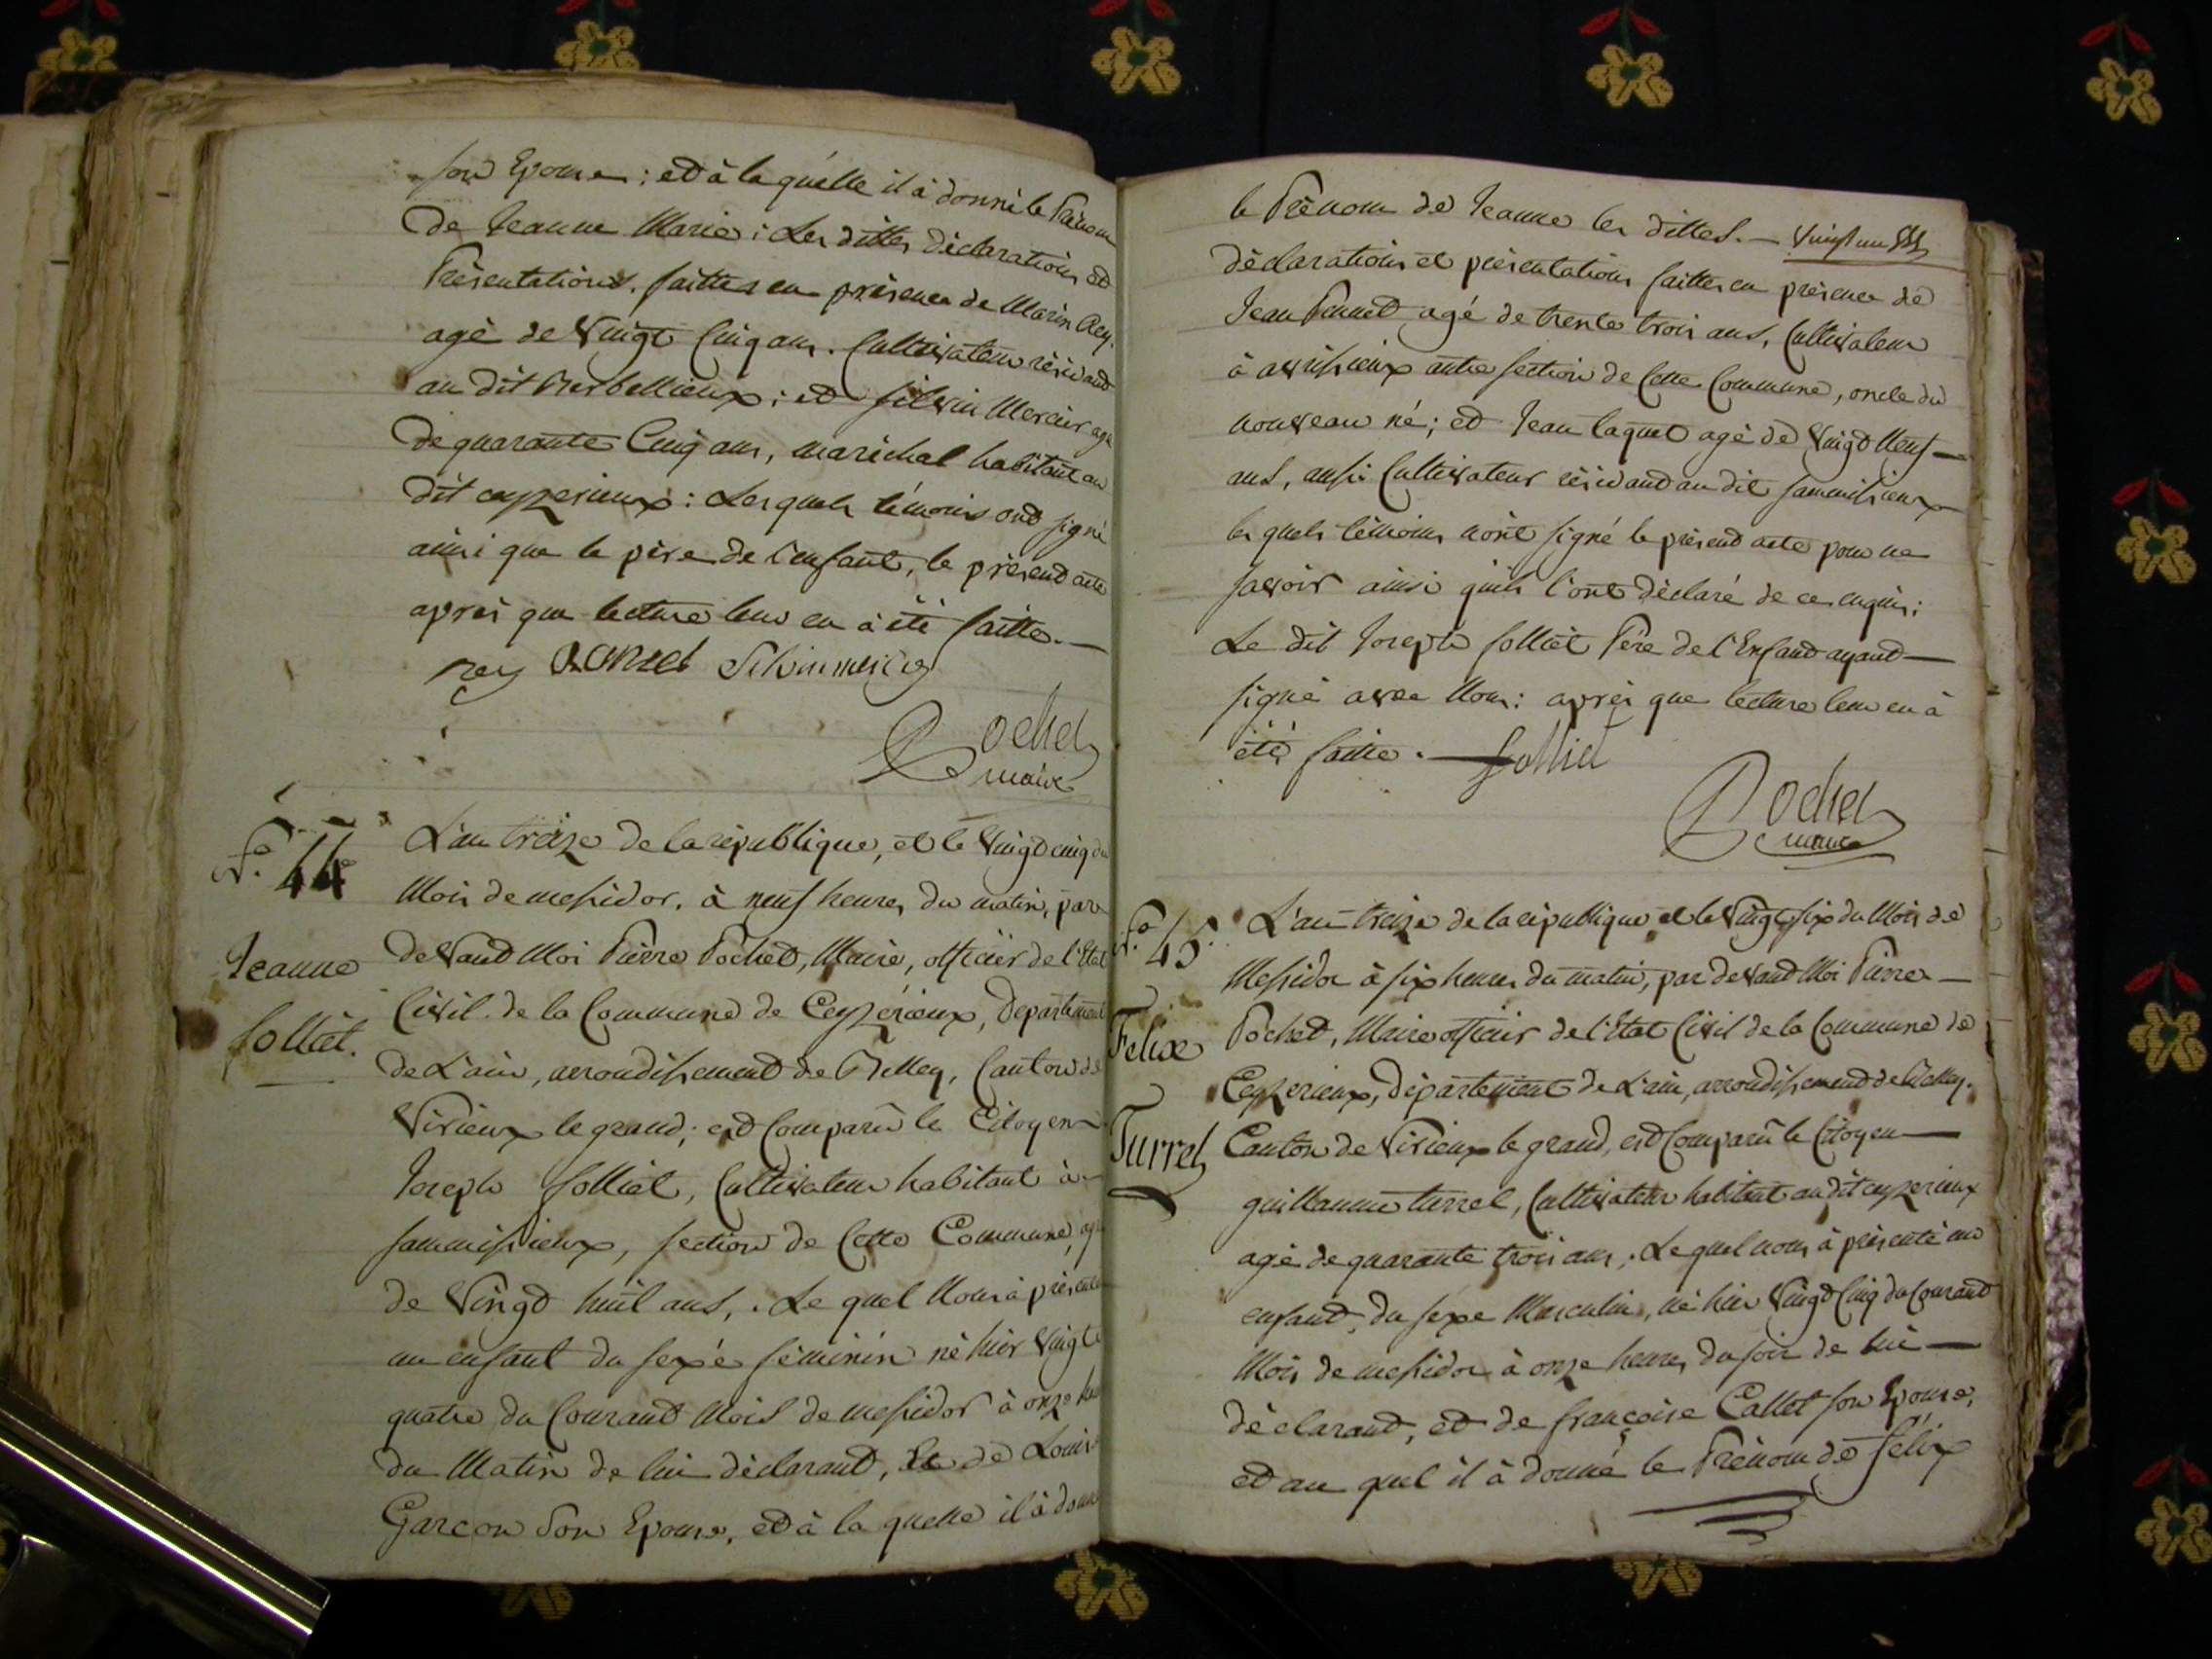 son Epouse; et à la quelle il à donné le Prénom
de Jeanne Marie; Les dittes déclarations et
Présentations. faittes en présence de Marin Rey.
agé de Vingt Cinq ans. Cultivateur résidant
au dit ; et Silvin Mercier agé
de quarante Cinq ans, maréchal habitant au
dit ceyzerieux: Les quels témoins ont signé
ainsi que le père de l'enfant, le présend acte
après que lecture leur en à été faitte.—
rey
Pochet
maire
N.o 44
Jeanne
folliet.
L'an treize de la république, et le Vingt cinq du
Mois de messidor. à neuf heures du matin, par
devand Moi Pierre Pochet, Maire, officier de l'Etat
Civil. de la Commune de Ceyzérieux, Departement
de L'ain, arrondissement de Belley, Canton de
Virieux le grand; est Comparû le Citoyen
Joseph folliet, Cultivateur habitant à
sammissieux, section de Cette Commune, agé
de Vingt huit ans, . Le quel Nous à présenté
un enfant du sexe féminin né hier Vingt
quatre du Courant Mois de messidor à onze
du Matin de lui déclarant, Et de Louise
Garcon Son Epouse, et à la quelle il à donné
le Prénom de Jeanne les dittes.— Vingt un
déclarations et présentations faittes en présence de
Jean agé de trente trois ans, Cultivateur
à avrissieux autre section de Cette Commune, oncle du
nouveau né; et Jean laquet agé de Vingt Neuf—
ans, aussi Cultivateur résidand au dit sammissieux
les quels témoins n'ont signé le présend acte pour ne
savoir ainsi quils l'ont déclaré de ce enquis;
Le dit Joseph folliet Père de l'Enfand ayand—
signé avec Nous: après que lecture leur en à
été faitte.— folliet
Pochet
maire
N.o 45.
Felix
Turrel
L'an treize de la république et le Vingt six du Mois de
Messidor à six heures du matin, par devand Moi Pierre—
Pochet, Maire officier de l'Etat Civil de la Commune de
Ceyzerieux, département de L'ain, arrondissement de Belley.
Canton de Virieux le grand, est Comparû le Citoyen—
guillaume turrel, Cultivateur habitant au dit ceyzerieux
agé de quarante trois ans, . Le quel nous à présenté un
enfant, du sexe Masculin, né hier Vingt Cinq du Courand
Mois de messidor à onze heures du soir de lui—
déclarant, et de françoise Callet son Epouse,
et au quel il à donné le Prénom de félix